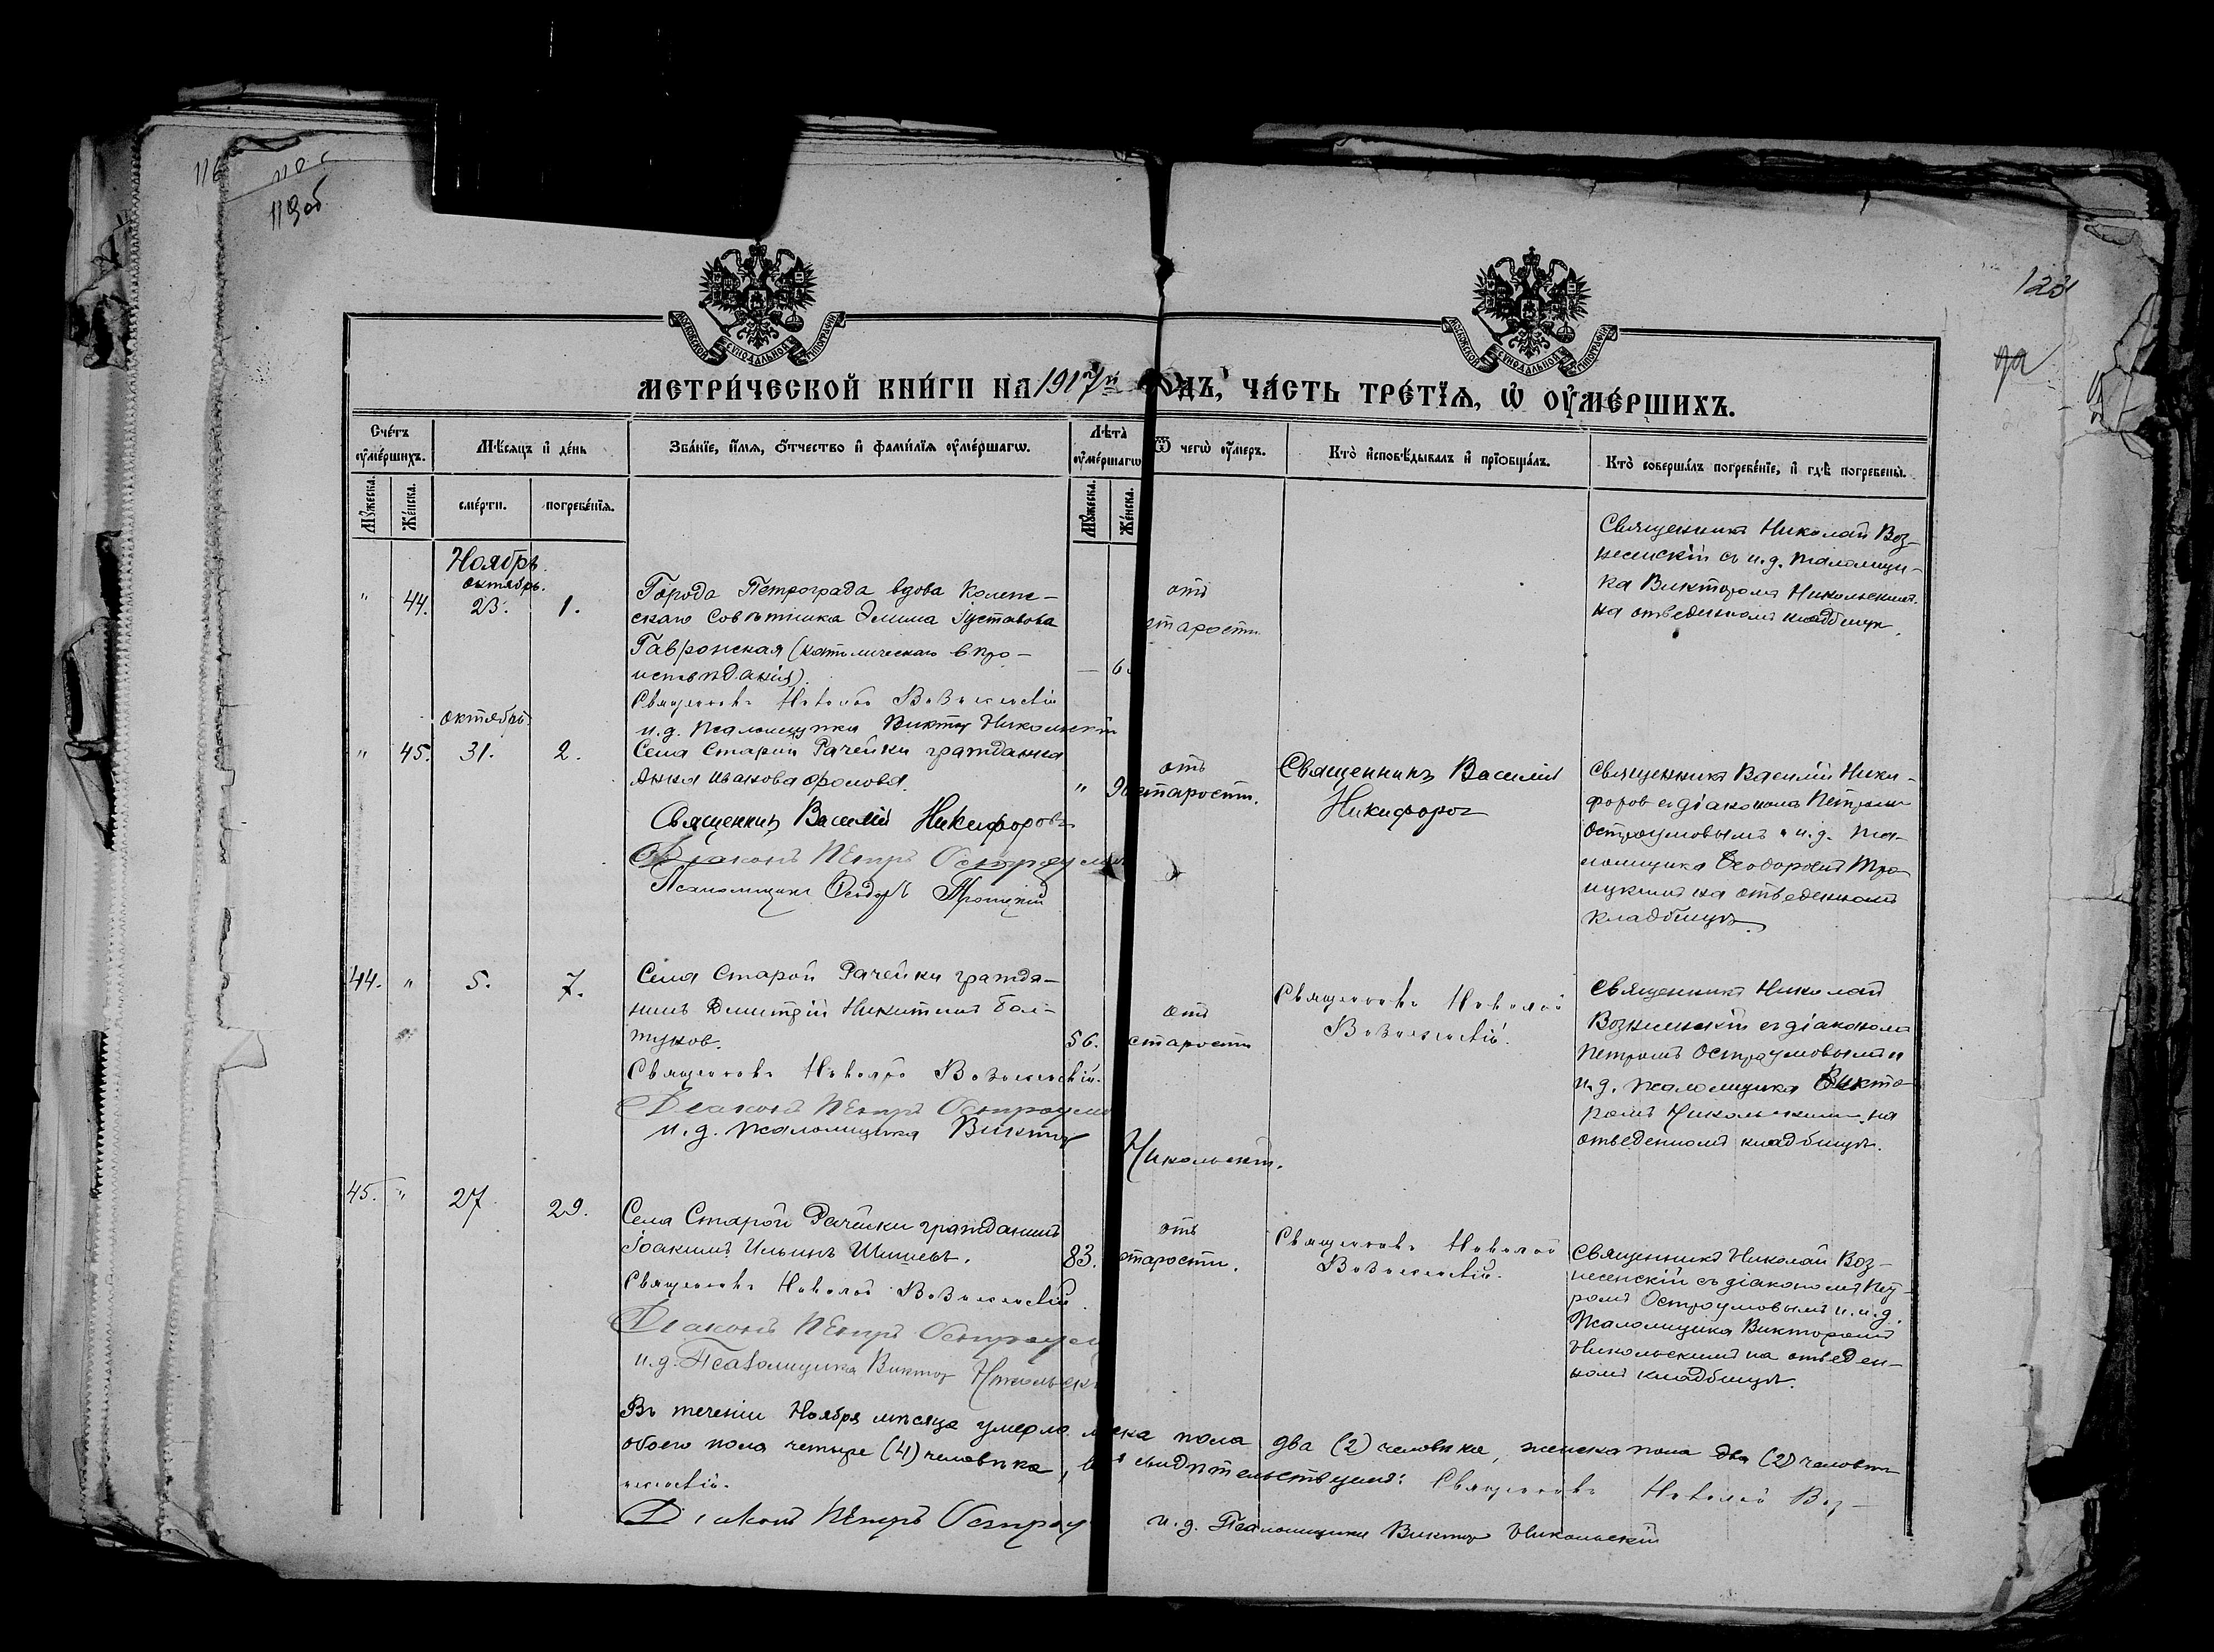 116
119об
120
МОСКОВСКОЙ СУНОДАЛЬНОЙ ТИПОГРАФІИ
МОСКОВСКОЙ СУНОДАЛЬНОЙ ТИПОГРАФІИ
МЕТРИ́ЧЕСКОЙ КНИ́ГИ НА 1917й ГОДЪ, ЧА́СТЬ ТРЕ́ТЇѦ, Ѡ ОУ҆МЕ́РШИХЪ.
Сче́тъ оу҆ме́ршихъ.
Мѣ́сѧцъ и҆ де́нь
Зва́нїе, и҆́мѧ, ѻ҆́тчество и҆ фами́лїѧ оу҆ме́ршагѡ.
Лѣ́та оу҆ме́ршагѡ
Ѿ чегѡ̀ оу҆́меръ.
Кто̀ и҆сповѣ́дывалъ и҆ прїѡбща́лъ.
Кто̀ соверша́лъ погребе́нїе, и҆ гдѣ̀ погребены̀.
Мꙋ́жеска.
Же́нска.
сме́рти.
погребе́нїѧ.
Мꙋ́жеска.
Же́нска.
Ноябрь.
октябрь.
" 44. 23. 1.
Города Петрограда вдова Колеж-
скаго Совѣтника Эмма Густавова
Гавронская (католическаго вѣро-
исповѣданія).
Священникъ Николай Вознесенскій
и.д. псаломщика Виктор Никольскій
отъ
старости
Священникъ Николай Воз-
несенскій съ и.д. псаломщи-
ка Викторомъ Никольскимъ
на отведенномъ кладбищѣ.
октябрь
" 45. 31. 2.
Села Старой Рачейки гражданка
Анна Иванова Фролова.
" 90
Священникъ Василій Никифоровъ
Діаконъ Петръ Остроумов
Псаломщикъ Феодоръ Троицкій
отъ
старости.
Священникъ Василій
Никифоров
Священникъ Василій Ники-
форов съ діакономъ Петромъ
Остроумовымъ и и.д. пса-
ломщика Феодоромъ Тро-
ицкимъ на отведенномъ
кладбищѣ.
44. " 5. 7.
Села Старой Рачейки гражда-
нинъ Димитрій Никитинъ Бол-
туков.
56.
Священникъ Николай Вознесенскій.
Діаконъ Петръ Остроумо
и.д. псаломщика Виктор
Никольскій.
отъ
старости
Священникъ Николай
Вознесенскій.
Священникъ Николай
Вознесенскій съ діакономъ
Петромъ Остроумовымъ и
и.д. псаломщика Викто-
ромъ Никольскимъ на
отведенномъ кладбищѣ.
45. " 27. 29.
Села Старой Рачейки гражданинъ
Іоакимъ Ильинъ Шишевъ.
83.
Священникъ Николай Вознесенскій.
Діаконъ Петръ Остроум
и.д. Псаломщика Виктор Никольскі
отъ
старости.
Священникъ Николай
Вознесенскій.
Священникъ Николай Воз-
несенскій съ діакономъ Пет-
ромъ Остроумовымъ и и.д.
псаломщика Викторомъ
Никольскимъ на отведен-
номъ кладбищѣ.
Въ теченіи Ноября мѣсяца умерло мужеска пола два (2) человѣка, женска пола два (2) человѣка
обоего пола четыре (4) человѣка, свидѣтельствуемъ: Священникъ Николай Воз-
несенскій.
Діаконъ Петръ Остроу
и.д. Псаломщика Виктор Никольскій